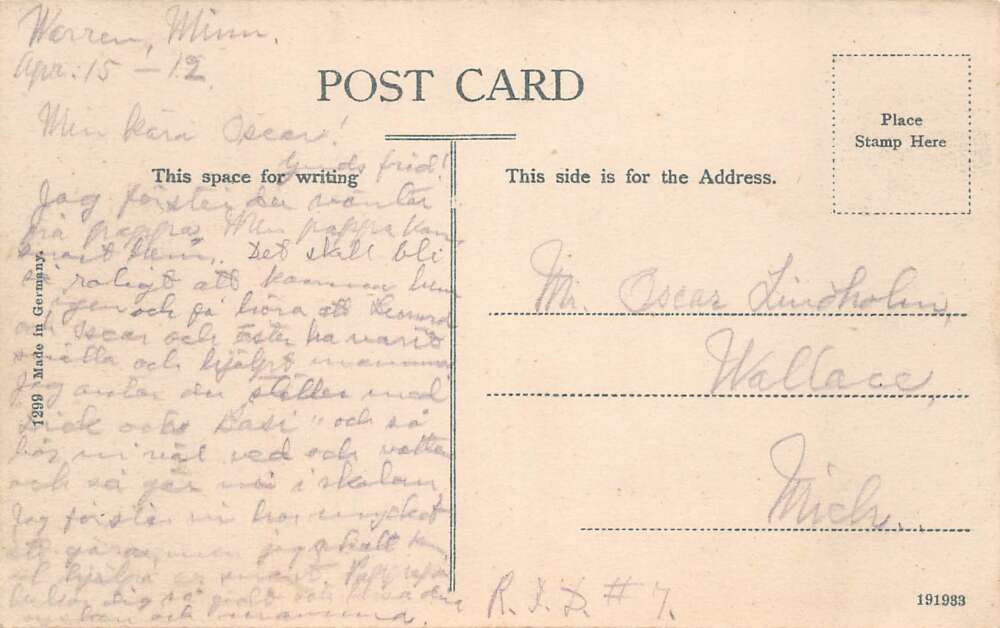 Warren, Minn.
Apr. 15 – 12
POST CARD
Place
Stamp Here
Min kära Oscar!
Guds frid!
This space for writing
This side is for the Address.
Jag förstår du väntar
på pappa, Men pappa kom
snart hem. Det skall bli
så roligt att komma hem
igen och få höra att Leonard
och Oscar och Ester ha varit
snälla och hjälpt mamma
Jag antar du ställer med
och så
bär ni väl ved och vatten
och så går ni i skolan,
Jag förstår ni har mycket
att göra, men jag skall kom
hjälpa er snart. Pappa
helsar dig så godt och
syskon och mamma.
1299 Made in Germany.
Mr. Oscar Lindholm,
Wallace,
Mich.
R.F.D. # 7.
191983